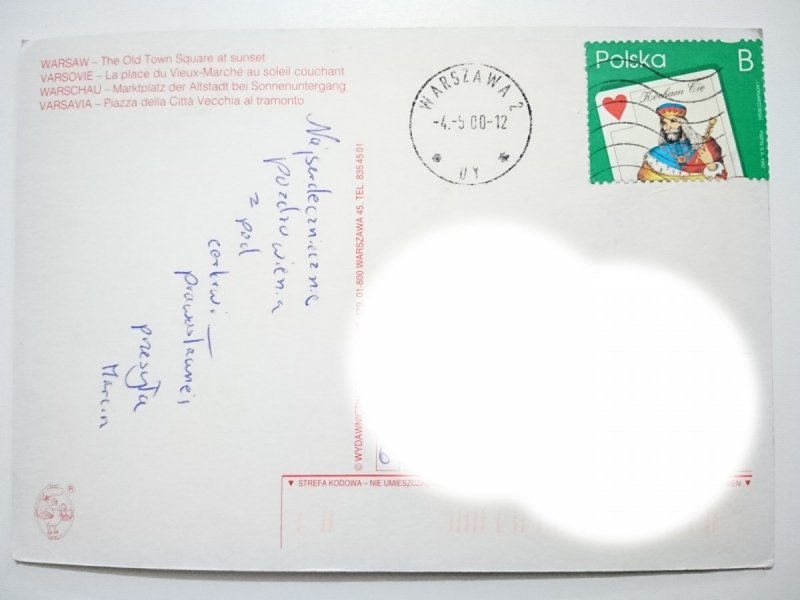 WARSAW – The Old Town Square at sunset
VARSOVIE – La place du Vieux-Marché au soleil couchant
WARSCHAU – Marktplatz der Altstadt bei Sonnenuntergang
VARSAVIA – Piazza della Città Vecchia al tramonto
WARSZAWA 2
-4.-5 00-12
UY
Polska B
Kocham Cię
Najserdeczniejsze
pozdrowienia
z pod
cerkwi
prawosławnej
przesyła
Marcin
01-800 WARSZAWA 45, TEL. 835 45 01
© WYDAWNICT
▼ STREFA KODOWA – NIE UMIESZCZA
▼
®